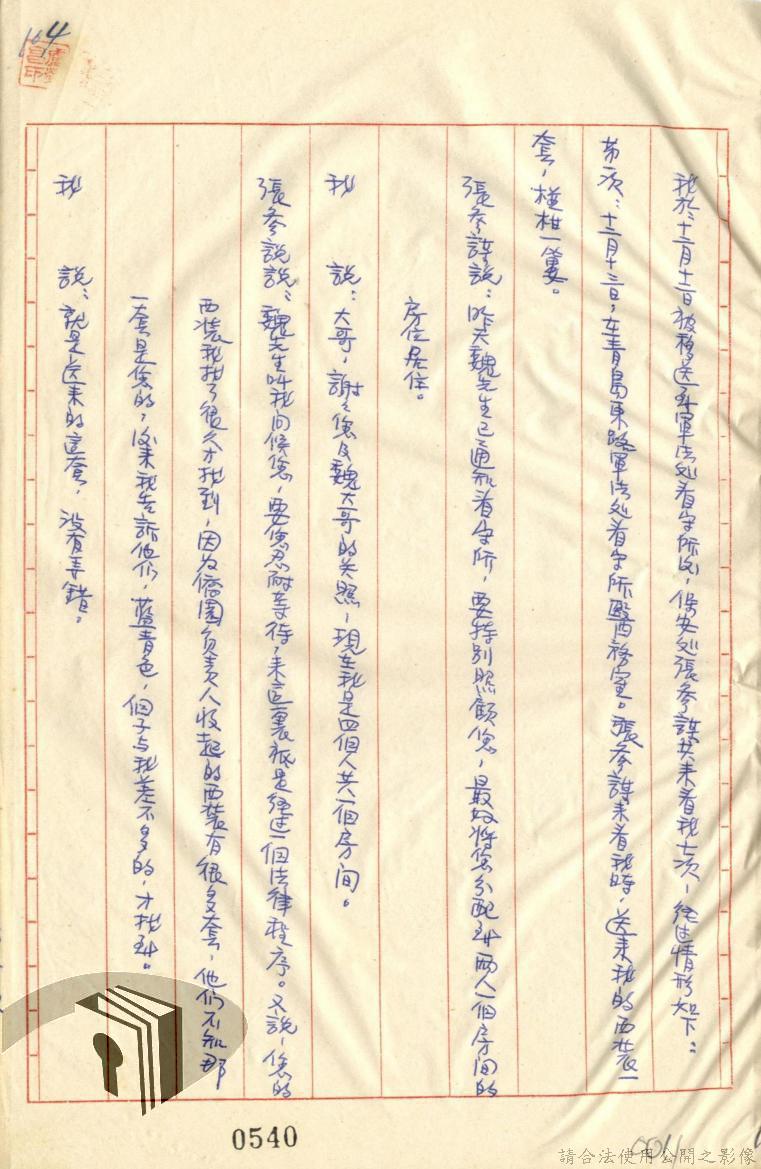 104
我於十二月十一日被移送到軍法处看守所後，保安处張參謀共来看我七次，経过情形如下：
第一次：十二月十三日，在青島東路軍法处看守所醫務室。張參謀来看我時，送来我的西裝一
套，椪柑一簍。
張參謀說：昨天魏先生已通知看守所，要特別照顧您，最好將您分配到兩人一個房间的
房位居住。
我　說：大哥，謝謝您及魏大哥的关照，現在我是四個人共一個房间。
張參謀說：魏先生叫我问候您，要您忍耐等待，来這裏祇是経过一個法律程序。又說，您的
西裝我找了很久才找到，因为僑園负责人收起的西裝有很多套，他们不知那
一套是您的，後来我告訴他们，藍青色，個子与我差不多的，才找到。
我　說：就是送来的這套，没有弄錯。
0540
請合法使用公開之影像